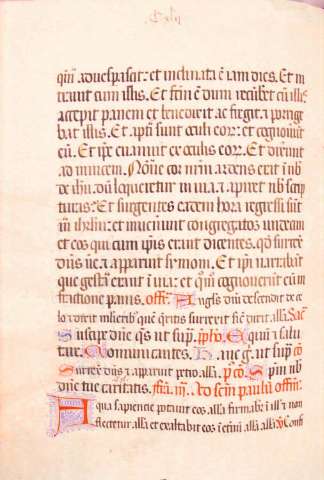 qm̄ aduesperascit: et inclinata ē iam dies. Et in
trauit cum illis. Et fc̄m ē dum recūbet cū illis
accepit panem et benedixit ac fregit: ⁊ porrige
bat illis. Et apti sunt oculi eoꝝ: et cognouerūt
eū. Et ip̄e euanuit ex oculis eoꝝ. Et dixerūt
ad inuicem. Nōne cor nr̄m ardens erat ī nob
de ihū dum loqueretur in uia. ⁊ apiret nob scrip
turas: Et surgentes eadem hora regressi sūt
in ihrlm: et inuenerunt congregatos undecim
et eos qui cum ipsis erant dicentes. qd̄ surrex̄
dn̄s ūe. ⁊ apparuit symoni. Et ip̄i narrabāt
que gesta erant ī uia: et qm̄ cognouerūt eum
fractione panis. offr̄. Angl's dn̄i descendit de ce
lo ⁊ dixit mulierib' quē queritis surrexit sic̄ dixit allā. Sac̄
Suscipe dn̄e qs̄ ut supͣ. ip̄ho. Equū ⁊ salu
tare. Comunicantes. Hanc g̅. ut supͣ co
Surrex̄ dn̄s ⁊ apparuit petro allā. P̄co. Spm nob
dn̄e tue caritatis. fr̄a. iij. Ad scm̄ paulū offm̄.
Aqua sapiencie potauit eos allā firmabit̄ ī ill' ⁊ non
flectetur allā et exaltabit eos ī et̄nū allā allā